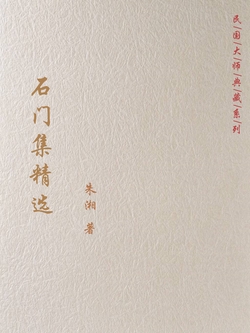 民/国/大/师/典/藏/系/列
石门集精选
朱湘 著